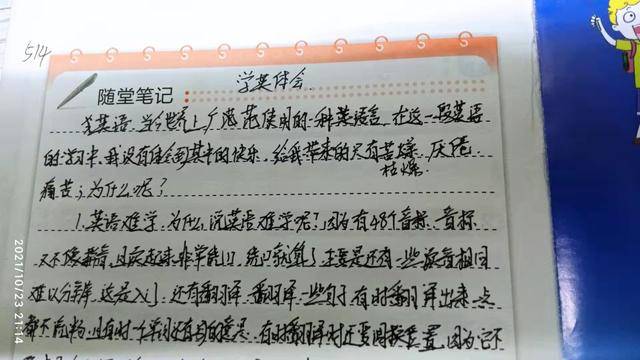 514
学英体会
随堂笔记
英语,当今世界上广泛范使用的一种英语言,在这一段英语
的学习中,我没有体会到其中的快乐,给我带来的只有苦燥、厌倦、
枯燥
痛苦;为什么呢?
1.英语难学,为什么说英语难学呢?因为有48个音标,音标
又不像拼音,且读起来非常绕口,绕口就算了主要是还有一些发音相同
难以分辨,这是入门.还有翻译,翻译一些句子有时翻译出来一点
都不流畅,且有时一个单词还有多的意思.有时翻译时还要调换位置,因为它不
2021/10/23 21:14